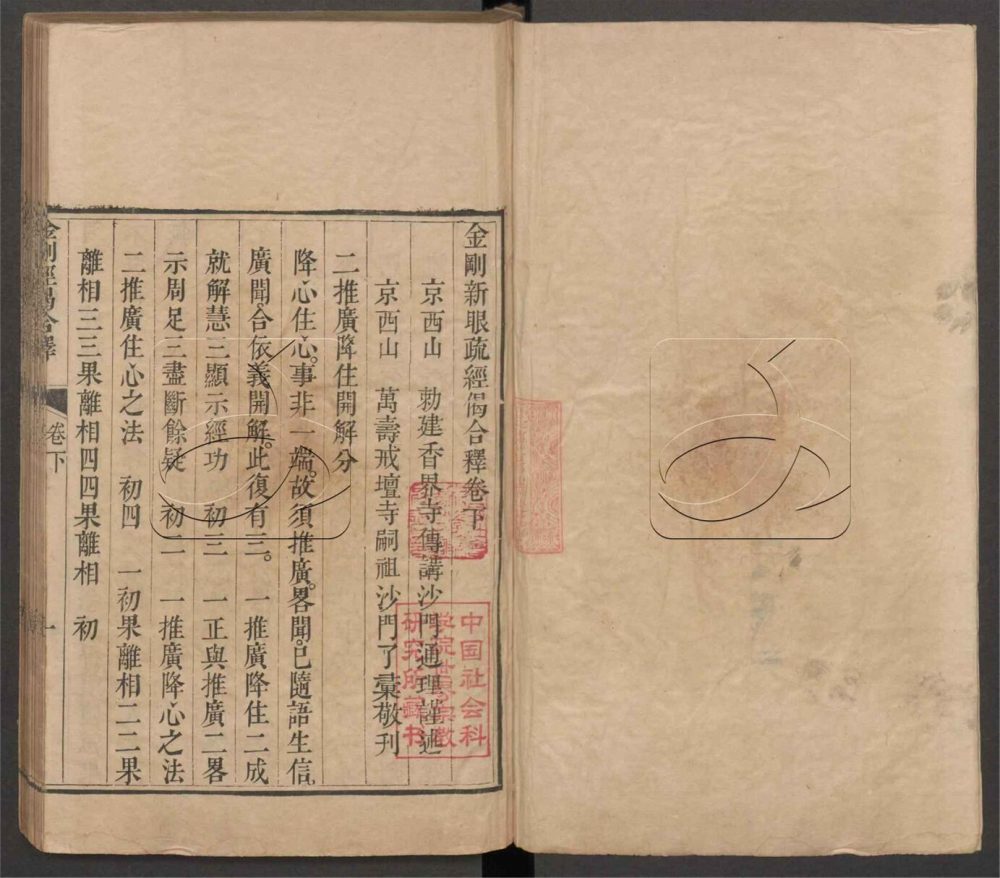 金剛新眼疏經偈合釋卷下
京西山　勅建香界寺傳講沙門通理謹述
京西山　萬壽戒壇寺嗣祖沙門了彙敬刊
二推廣降住開解分
降心住心。事非一端。故須推廣。畧聞。已隨語生信。
廣聞。合依義開解。此復有三。　一推廣降住二成
就解慧三顯示經功　初三　一正與推廣二畧
示周足三盡斷餘疑　初二　一推廣降心之法
二推廣住心之法　初四　一初果離相二二果
離相三三果離相四四果離相　初
金剛經偈合釋　卷下　一
中国社会科
学院世界宗教
研究所藏书